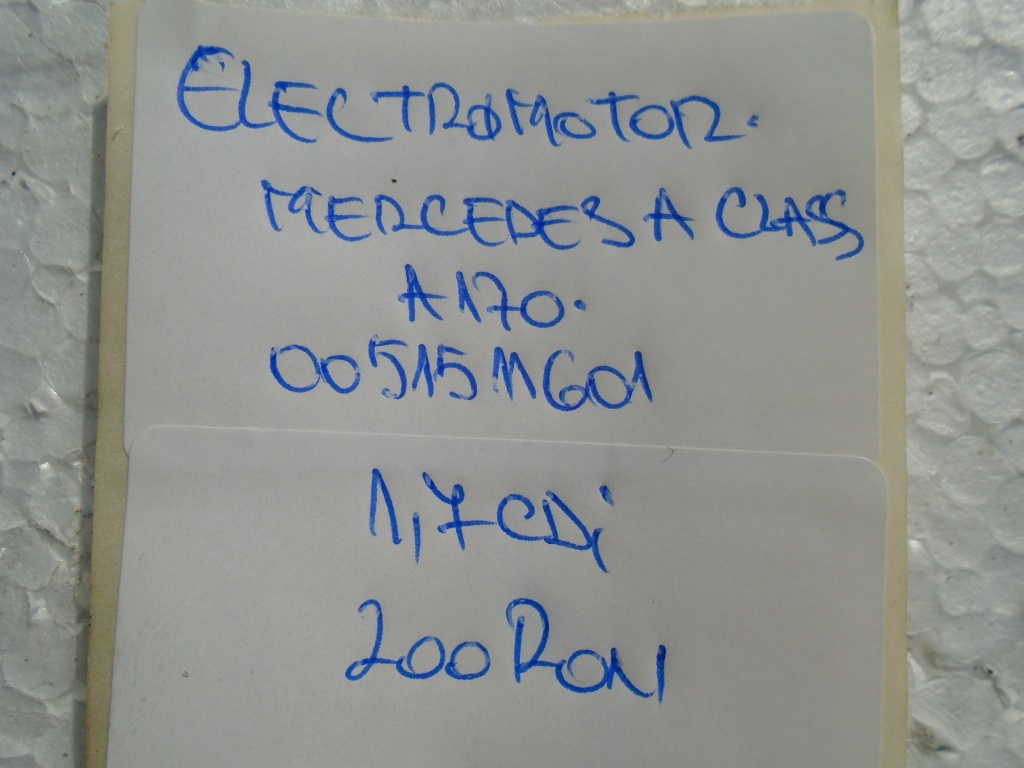 ELECTROMOTOR.
MERCEDES A CLASS
A170.
0051511601
1,7 CDi
200 RON